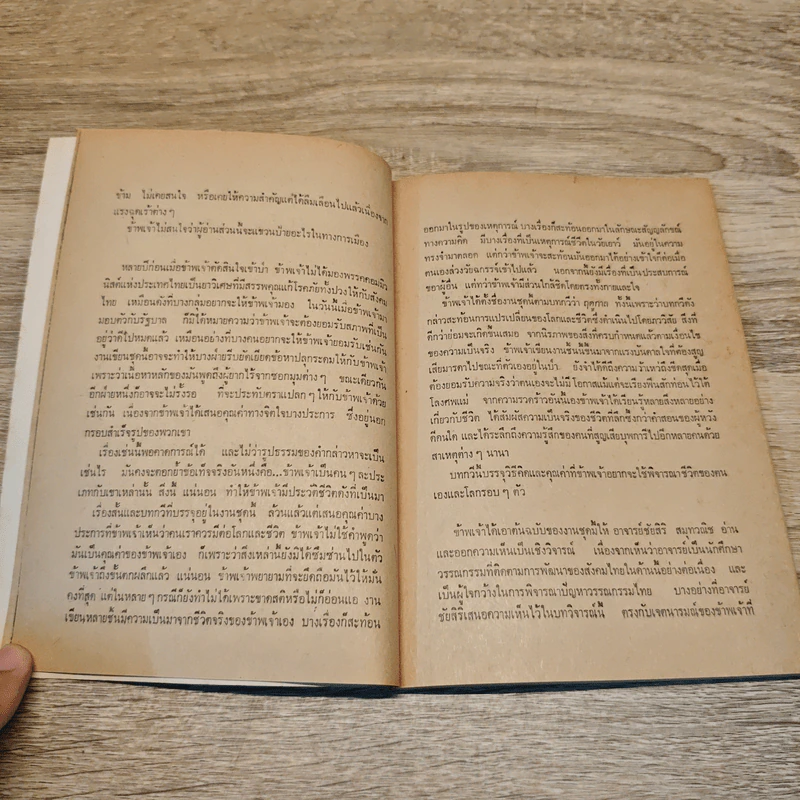 ข้าม ไม่เคยสนใจ หรือเคยให้ความสำคัญแต่ได้ลืมเลือนไปแล้วเนื่องจาก
แรงฉุดเร้าต่าง ๆ
ข้าพเจ้าไม่สนใจว่าผู้อ่านส่วนนี้จะแขวนป้ายอะไรในทางการเมือง
หลายปีก่อนเมื่อข้าพเจ้าตัดสินใจเข้าป่า ข้าพเจ้าไม่ได้มองพรรคคอมมิว
นิสต์แห่งประเทศไทยเป็นยาวิเศษที่มีสรรพคุณแก้โรคภัยทั้งปวงให้กับสังคม
ไทย เหมือนดังที่บางกลุ่มอยากจะให้ข้าพเจ้ามอง ในวันนี้เมื่อข้าพเจ้ามา
มอบตัวกับรัฐบาล ก็มิได้หมายความว่าข้าพเจ้าจะต้องยอมรับสภาพที่เป็น
อยู่ว่าดีไปหมดแล้ว เหมือนอย่างที่บางคนอยากจะให้ข้าพเจ้ายอมรับเช่นกัน
งานเขียนชุดนี้อาจจะทำให้บางฝ่ายรีบยัดเยียดข้อหาปลุกระดมให้กับข้าพเจ้า
เพราะว่าเนื้อหาหลักของมันพูดถึงผู้ยากไร้จากซอกมุมต่าง ๆ ขณะเดียวกัน
อีกฝ่ายหนึ่งก็อาจจะไม่รั้งรอ ที่จะประทับตราแปลก ๆ ให้กับข้าพเจ้าด้วย
เช่นกัน เนื่องจากข้าพเจ้าได้เสนอคุณค่าทางจิตใจบางประการ ซึ่งอยู่นอก
กรอบสำเร็จรูปของพวกเขา
เรื่องเช่นนี้พอคาดการณ์ได้ และไม่ว่ารูปธรรมของคำกล่าวหาจะเป็น
เช่นไร มันคงจะตอกย้ำข้อเท็จจริงอันหนึ่งคือ...ข้าพเจ้าเป็นคนๆ ละประ
เภทกับเขาเหล่านั้น สิ่งนี้ แน่นอน ทำให้ข้าพเจ้ามีประวัติชีวิตดังที่เป็นมา
เรื่องสั้นและบทกวีที่บรรจุอยู่ในงานชุดนี้ ล้วนแล้วแต่เสนอคุณค่าบาง
ประการที่ข้าพเจ้าเห็นว่าคนเราควรมีต่อโลกและชีวิต ข้าพเจ้าไม่ใช้คำพูดว่า
มันเป็นคุณค่าของข้าพเจ้าเอง ก็เพราะว่าสิ่งเหล่านี้ยังมิได้ซึมซ่านไปในตัว
ข้าพเจ้าถึงขั้นตกผลึกแล้ว แน่นอน ข้าพเจ้าพยายามที่จะยึดถือมันไว้ให้มั่น
คงที่สุด แต่ในหลาย ๆ กรณีก็ยังทำไม่ได้เพราะขาดสติหรือไม่ก็อ่อนแอ งาน
เขียนหลายชิ้นมีความเป็นมาจากชีวิตจริงของข้าพเจ้าเอง บางเรื่องก็สะท้อน
ออกมาในรูปของเหตุการณ์ บางเรื่องก็สะท้อนออกมาในลักษณะสัญญลักษณ์
ทางความคิด มีบางเรื่องที่เป็นเหตุการณ์ชีวิตในวัยเยาว์ มันอยู่ในความ
ทรงจำมาตลอด แต่กว่าข้าพเจ้าจะสะท้อนมันออกมาได้อย่างเข้าใจก็ต่อเมื่อ
ตนเองล่วงวัยฉกรรจ์เข้าไปแล้ว นอกจากนี้ยังมีเรื่องที่เป็นประสบการณ์
ของผู้อื่น แต่ทว่าข้าพเจ้ามีส่วนใกล้ชิดโดยตรงทั้งกายและใจ
ข้าพเจ้าตั้งชื่องานชุดนี้ตามบทกวีว่า ฤดูกาล ทั้งนี้เพราะว่าบทกวีดัง
กล่าวสะท้อนการแปรเปลี่ยนของโลกและชีวิตซึ่งดำเนินไปโดยภววิสัย สิ่งที่
ดีกว่าย่อมจะเกิดขึ้นเสมอ จากนิรภาพของสิ่งที่ครบกำหนดแล้วตามเงื่อนไข
ของความเป็นจริง ข้าพเจ้าเขียนงานชิ้นนี้ขึ้นมาจากแรงบันดาลใจที่ต้องสูญ
เสียมารดาไปขณะที่ตัวเองอยู่ในป่า ยิ่งข้าได้คิดถึงความว้าเหว่ถึงขีดสุดเมื่อ
ต้องยอมรับความจริงว่าตนเองจะไม่มี โอกาสแม้แต่จะเรี่ยงพื้นสักท่อนไว้ใต้
โลงศพแม่ จากความรวดร้าวอันนี้เองข้าพเจ้าได้เรียนรู้หลายสิ่งหลายอย่าง
เกี่ยวกับชีวิต ได้สัมผัสความเป็นจริงของชีวิตที่ลึกซึ้งกว่าคำสอนของผู้หวัง
ดีคนใด และได้ระลึกถึงความรู้สึกของคนที่สูญเสียบุพการีไปอีกหลายคนด้วย
สาเหตุต่าง ๆ นานา
บทกวีนี้บรรจุวิธีคิดและคุณค่าที่ข้าพเจ้าอยากจะใช้พิจารณาชีวิตของตน
เองและโลกรอบ ๆ ตัว
ข้าพเจ้าได้เอาต้นฉบับของงานชุดนี้ให้ อาจารย์ชัยสิริ สมุทวณิช อ่าน
และออกความเห็นเป็นเชิงวิจารณ์ เนื่องจากเห็นว่าอาจารย์เป็นนักศึกษา
วรรณกรรมที่ติดตามการพัฒนาของสังคมไทยในด้านนี้อย่างต่อเนื่อง และ
เป็นผู้ใจกว้างในการพิจารณาปัญหาวรรณกรรมไทย บางอย่างที่อาจารย์
ชัยสิริเสนอความเห็นไว้ในบทวิจารณ์นี้ ตรงกับเจตนารมณ์ของข้าพเจ้าที่